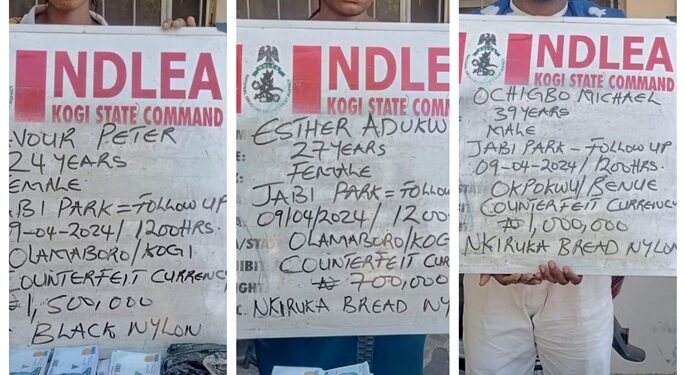 NDLEA
KOGI STATE COMMAND
VOUR PETER
24 YEARS
EMALE
ABI PARK = FOLLOW UP
9-04-2024/1200HRS.
OLAMABORO/KOGI
COUNTERFEIT CURRENCY
₦1,500,000
BLACK NYLON
NDLEA
KOGI STATE COMMAND
ESTHER ADUKW
27 YEARS
FEMALE
JABI PARK = FOLLOW
09/04/2024/1200
OLAMABORO/KOGI
COUNTERFEIT CUR
₦ 700,000
NKIRUKA BREAD NY
NDLEA
KOGI STATE COMMAND
OCHIGBO MICHAEL
39YEARS
MALE
JABI PARK - FOLLOW UP
09-04-2024/1200HRS.
OKPOKWU/BENUE
COUNTERFEIT CURRENCY
₦1,000,000
NKIRUKA BREAD NYLON